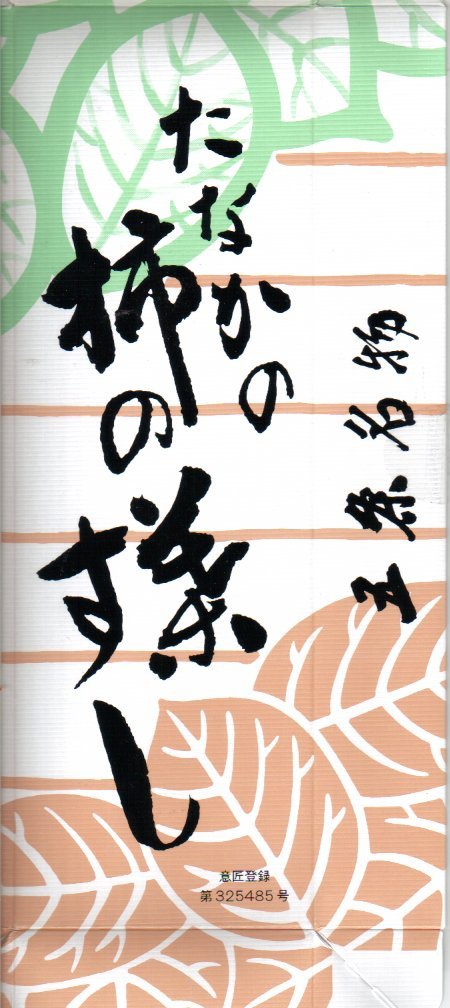 五条名物
たなかの
柿の葉すし
意匠登録
第325485号